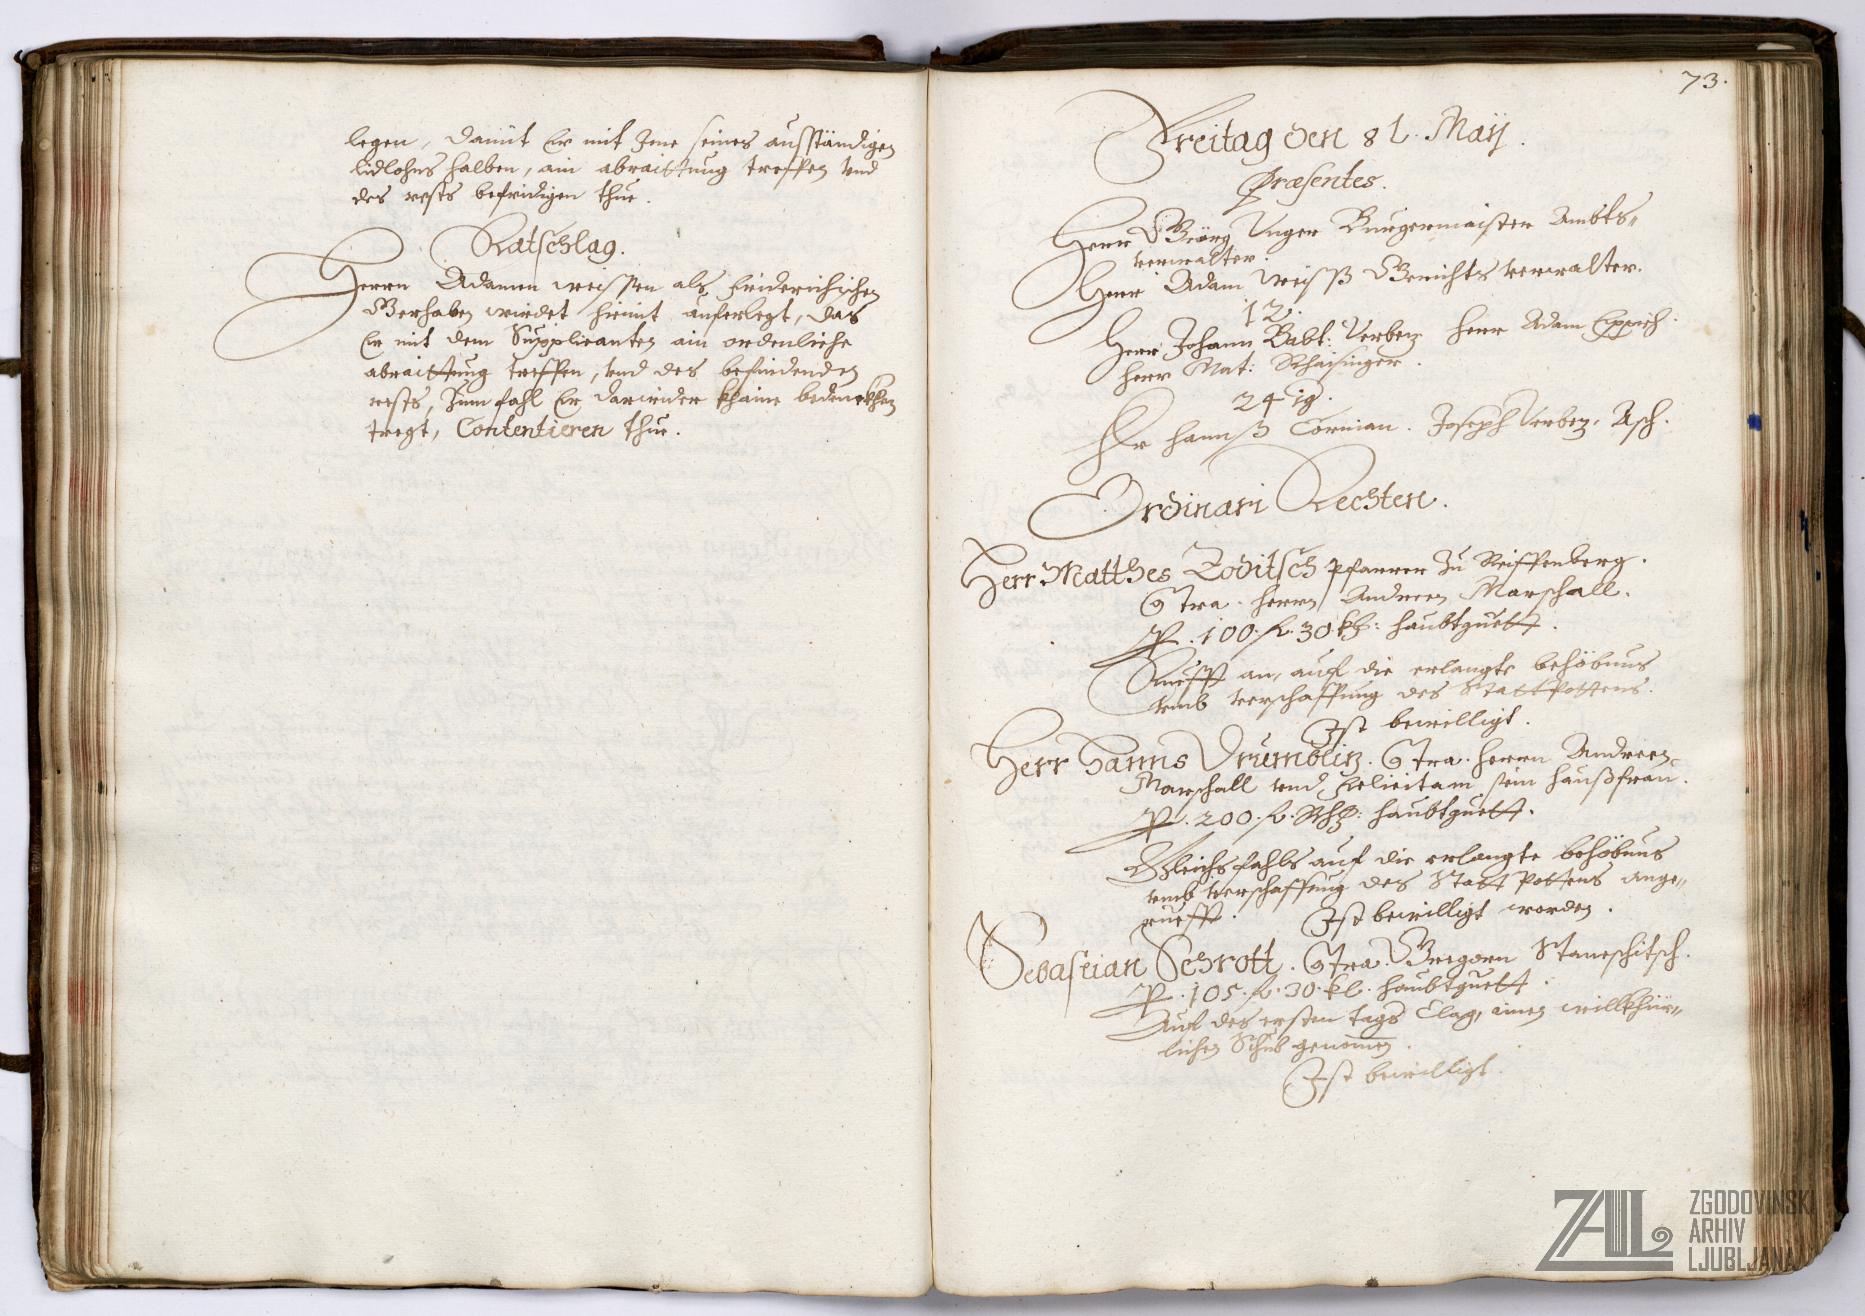 legen, damit Er mit Ime seines ausständigen
lidlohns halben, ain abraittung treffen vnd
des rests befridigen thue.
Ratschlag.
Herrn Adamen weissen als friderichischen
Gerhaben wirdet hiemit auferlegt, das
Er mit dem Supplicanten ain ordenliche
abraittung treffen, vnd des befindenden
rests, Zum fahl Er darwider khaine bedenckhen
tregt, Contentieren thue.
73.
Freitag den 8 t. Maÿ.
Præsentes.
Herr Geörg Vnger Burgermaister Ambts-
verwalter.
Herr Adam Weiss Gerichts verwalter.
12.
Herr Johann Babt: Verbez Herr Adam Eppich.
Herr Mat: Schaisinger.
24ig.
Hr hannß Cornian. Joseph Verbez. Asch.
Ordinari Rechten.
Herr Matthes Zoditsch Pfarrer Zu Reiffenberg.
Contra. Herrn Andreen Marschall.
P. 100. fl. 30 kh: haubtguett.
Rueff an, auf die erlangte behöbnus
vmb verschaffung des Statt Pottens.
Ist bewilligt.
Herr Hanns Drumbliz. Contra. Herrn Andreen
Marschall vnd Felicitam sein haußfrau.
P. 200. fl. Rh: haubtguett.
Gleichsfahls auf die erlangte behöbnus
vmb verschaffung des Statt Pottens ange-
rueff. Ist bewilligt worden.
Sebastian Schrott. Contra. Gregorn Staneschitsch.
P. 105. fl. 30. kl. haubtguett.
Auf des ersten tags Clag, einen willkhür-
lichen Schub genomen.
Ist bewilligt.
ZAL
ZGODOVINSKI
ARHIV
LJUBLJANA